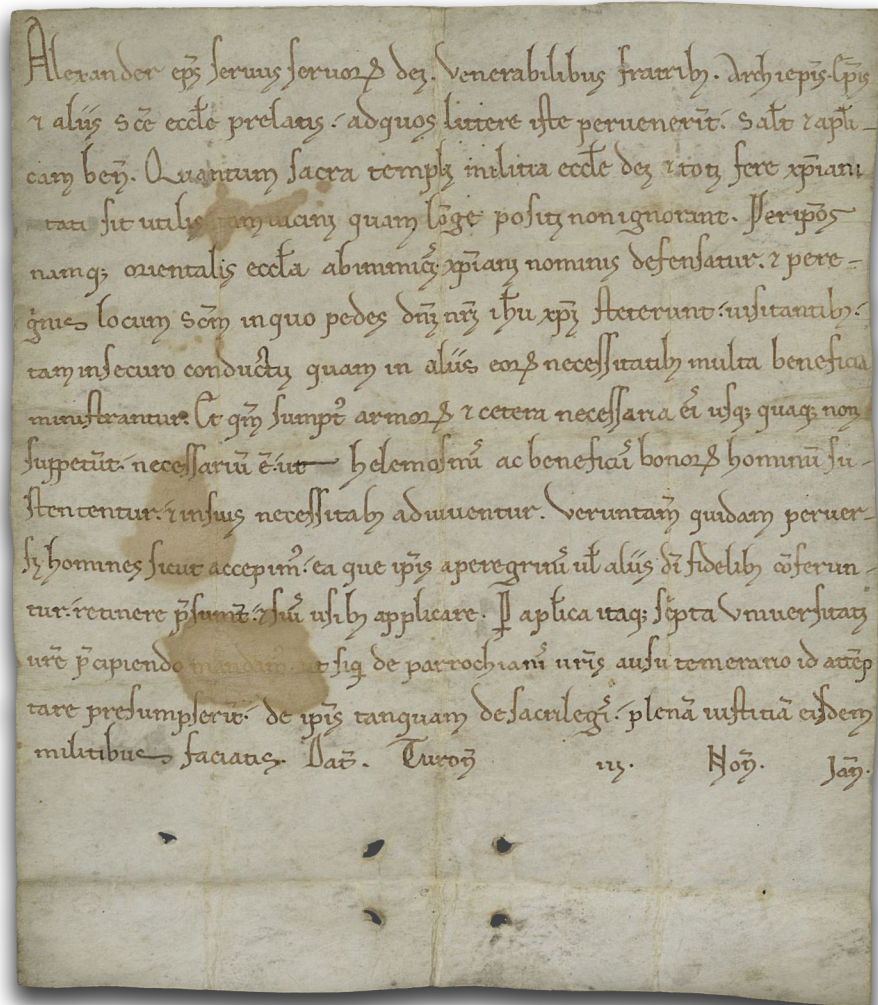 Alexander ep̄s seruus seruoꝝ dei. Venerabilibus fratribꝫ. Archiep̄is. Ep̄is
⁊ aliis Sc̄e eccl̄e prelatis. ad quos littere iste peruenerīt. Sal̄t ⁊ apl̄i-
cam beñ. Quantum sacra templi militia eccl̄e dei ⁊ toti fere xp̄iani
tati sit utilis tam uicini quam lōge positi non ignorant. Per ip̄os
namqꝫ orientalis eccl̄a ab inimicis xp̄iani nominis defensatur. ⁊ pere-
gͥnis locum Sc̄m in quo pedes dn̄i nr̄i ih̄u xp̄i steterunt. uisitantibꝫ.
tam in securo conductu quam in aliis eoꝝ necessitatibꝫ multa beneficia
ministrantur. Et qm̄ sumptꝰ armoꝝ ⁊ cetera necessaria eis usqꝫ quaqꝫ non
suppetūt. necessariū ē. ut helemosinis ac beneficiis bonoꝝ hominū su-
stententur. ⁊ in suis necessitatibꝫ adiuuentur. Veruntam̄ quidam peruer-
si homines sicut accepimꝰ. ea que ip̄is a peregrinis ul̄ aliis di̅ fidelibꝫ cōferun-
tur. retinere p̄sumūt. ⁊ suis usibꝫ applicare. ꝑ apl̄ica itaqꝫ sc̄pta Vniuersitati
ur̄e p̄cipiendo mandamꝰ. ut siqui de parrochianis ur̄is ausu temerario id attēp
tare presumpserīt. de ip̄is tanquam de sacrilegis. plenā iustitiā eisdem
militibus faciatis. Dat̄. Turon̄ iii. Non̄. Jan̄.